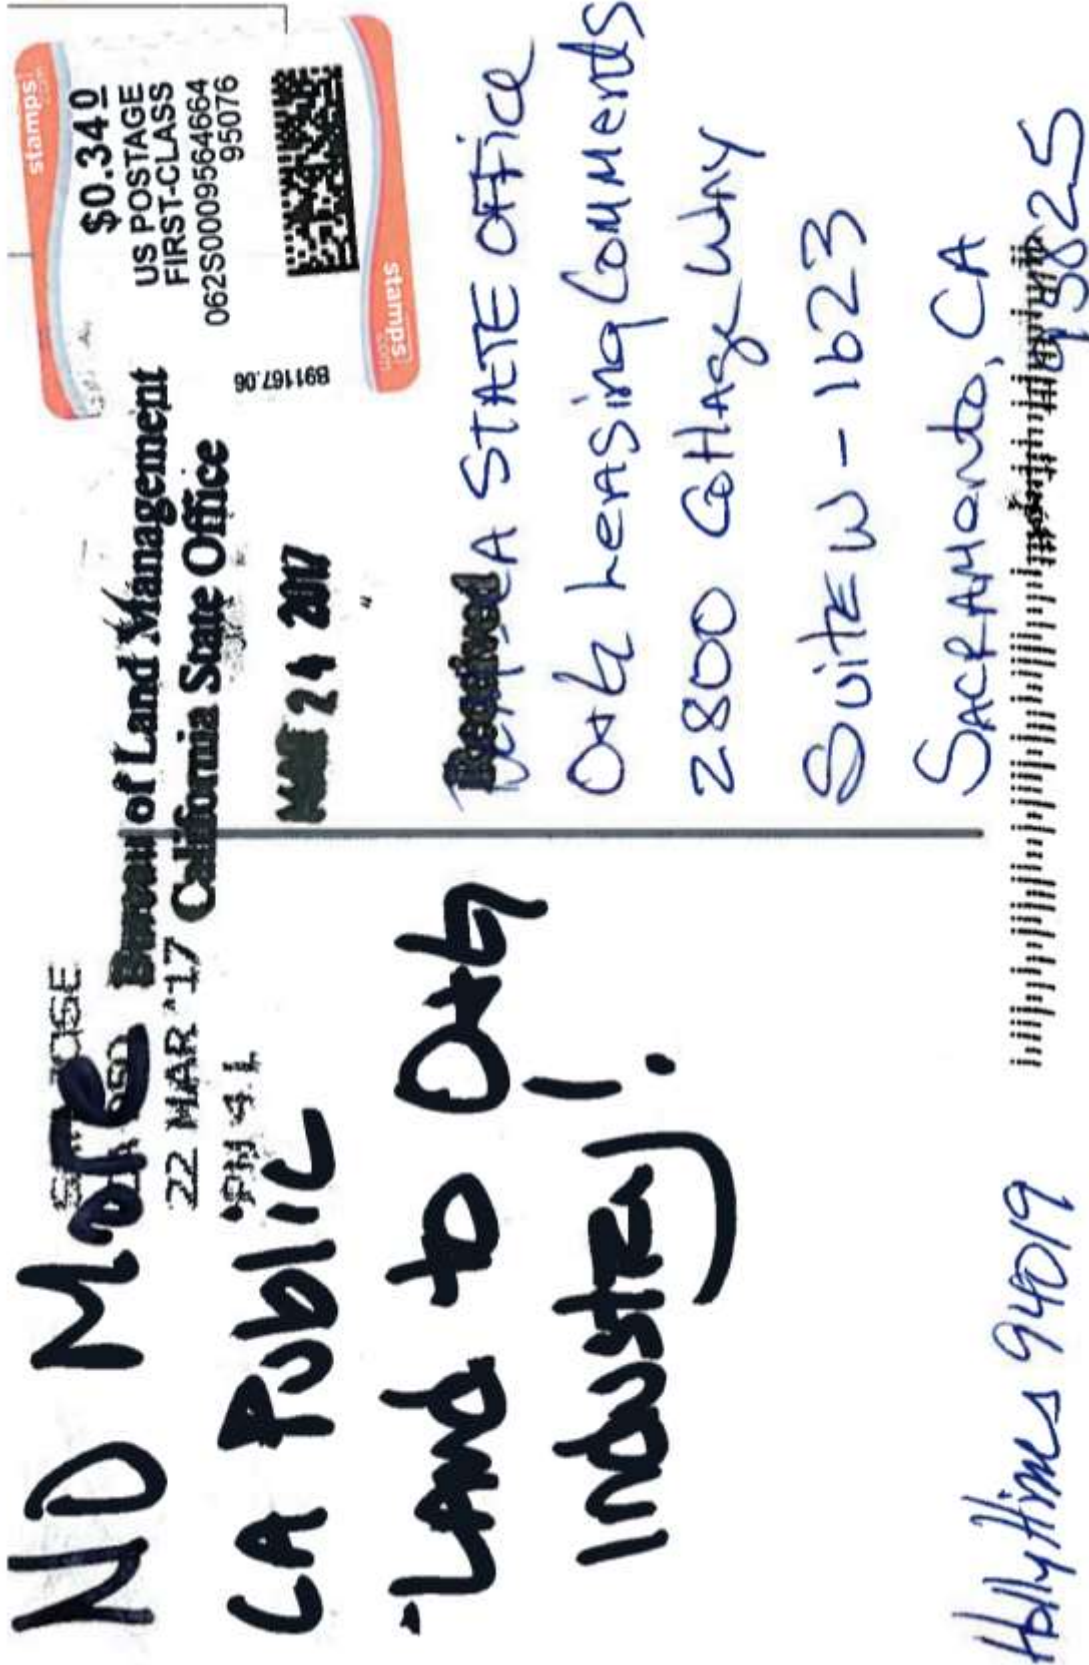 NO MORE
CA Public
LAND to O+G
INDUSTRY!
Holly Himes 94019
SAN JOSE
CA 950
22 MAR '17
PM 4 L
Bureau of Land Management
California State Office
MAR 24 2017
Received
stamps.com
$0.340
US POSTAGE
FIRST-CLASS
062S0009564664
95076
stamps.com
B91167.06
CA STATE OFFICE
O+G Leasing Comments
2800 Cottage Way
Suite W-1623
SACRAMENTO, CA
95825